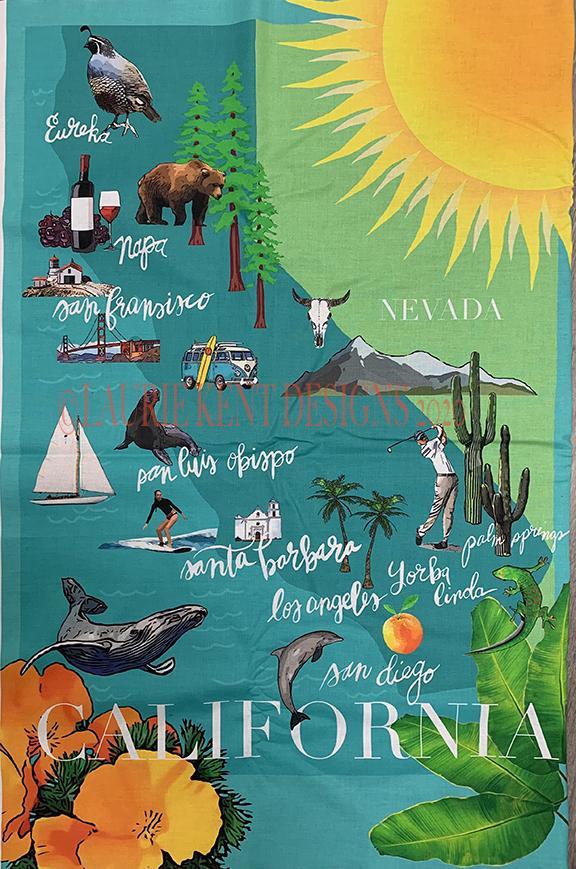 Eureka
napa
san fransisco
NEVADA
© LAURIE KENT DESIGNS 2022
san luis obispo
santa barbara
palm springs
los angeles
Yorba
linda
san diego
CALIFORNIA